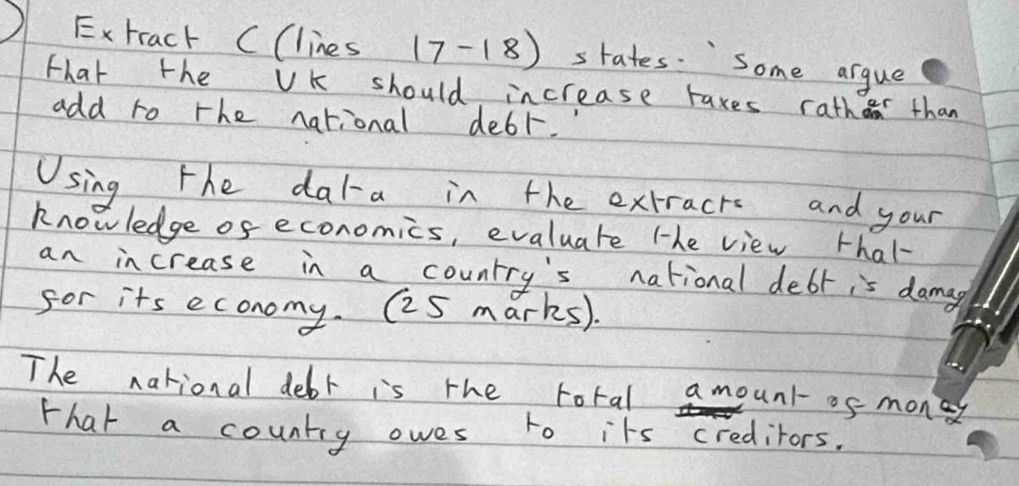 Extract C (lines 17-18) states: 'Some argue
that the UK should increase taxes rather than
add to the national debt.'
Using the data in the extracts and your
knowledge of economics, evaluate the view that
an increase in a country's national debt is damag
for its economy. (25 marks).
The national debt is the total amount of money
that a country owes to its creditors.